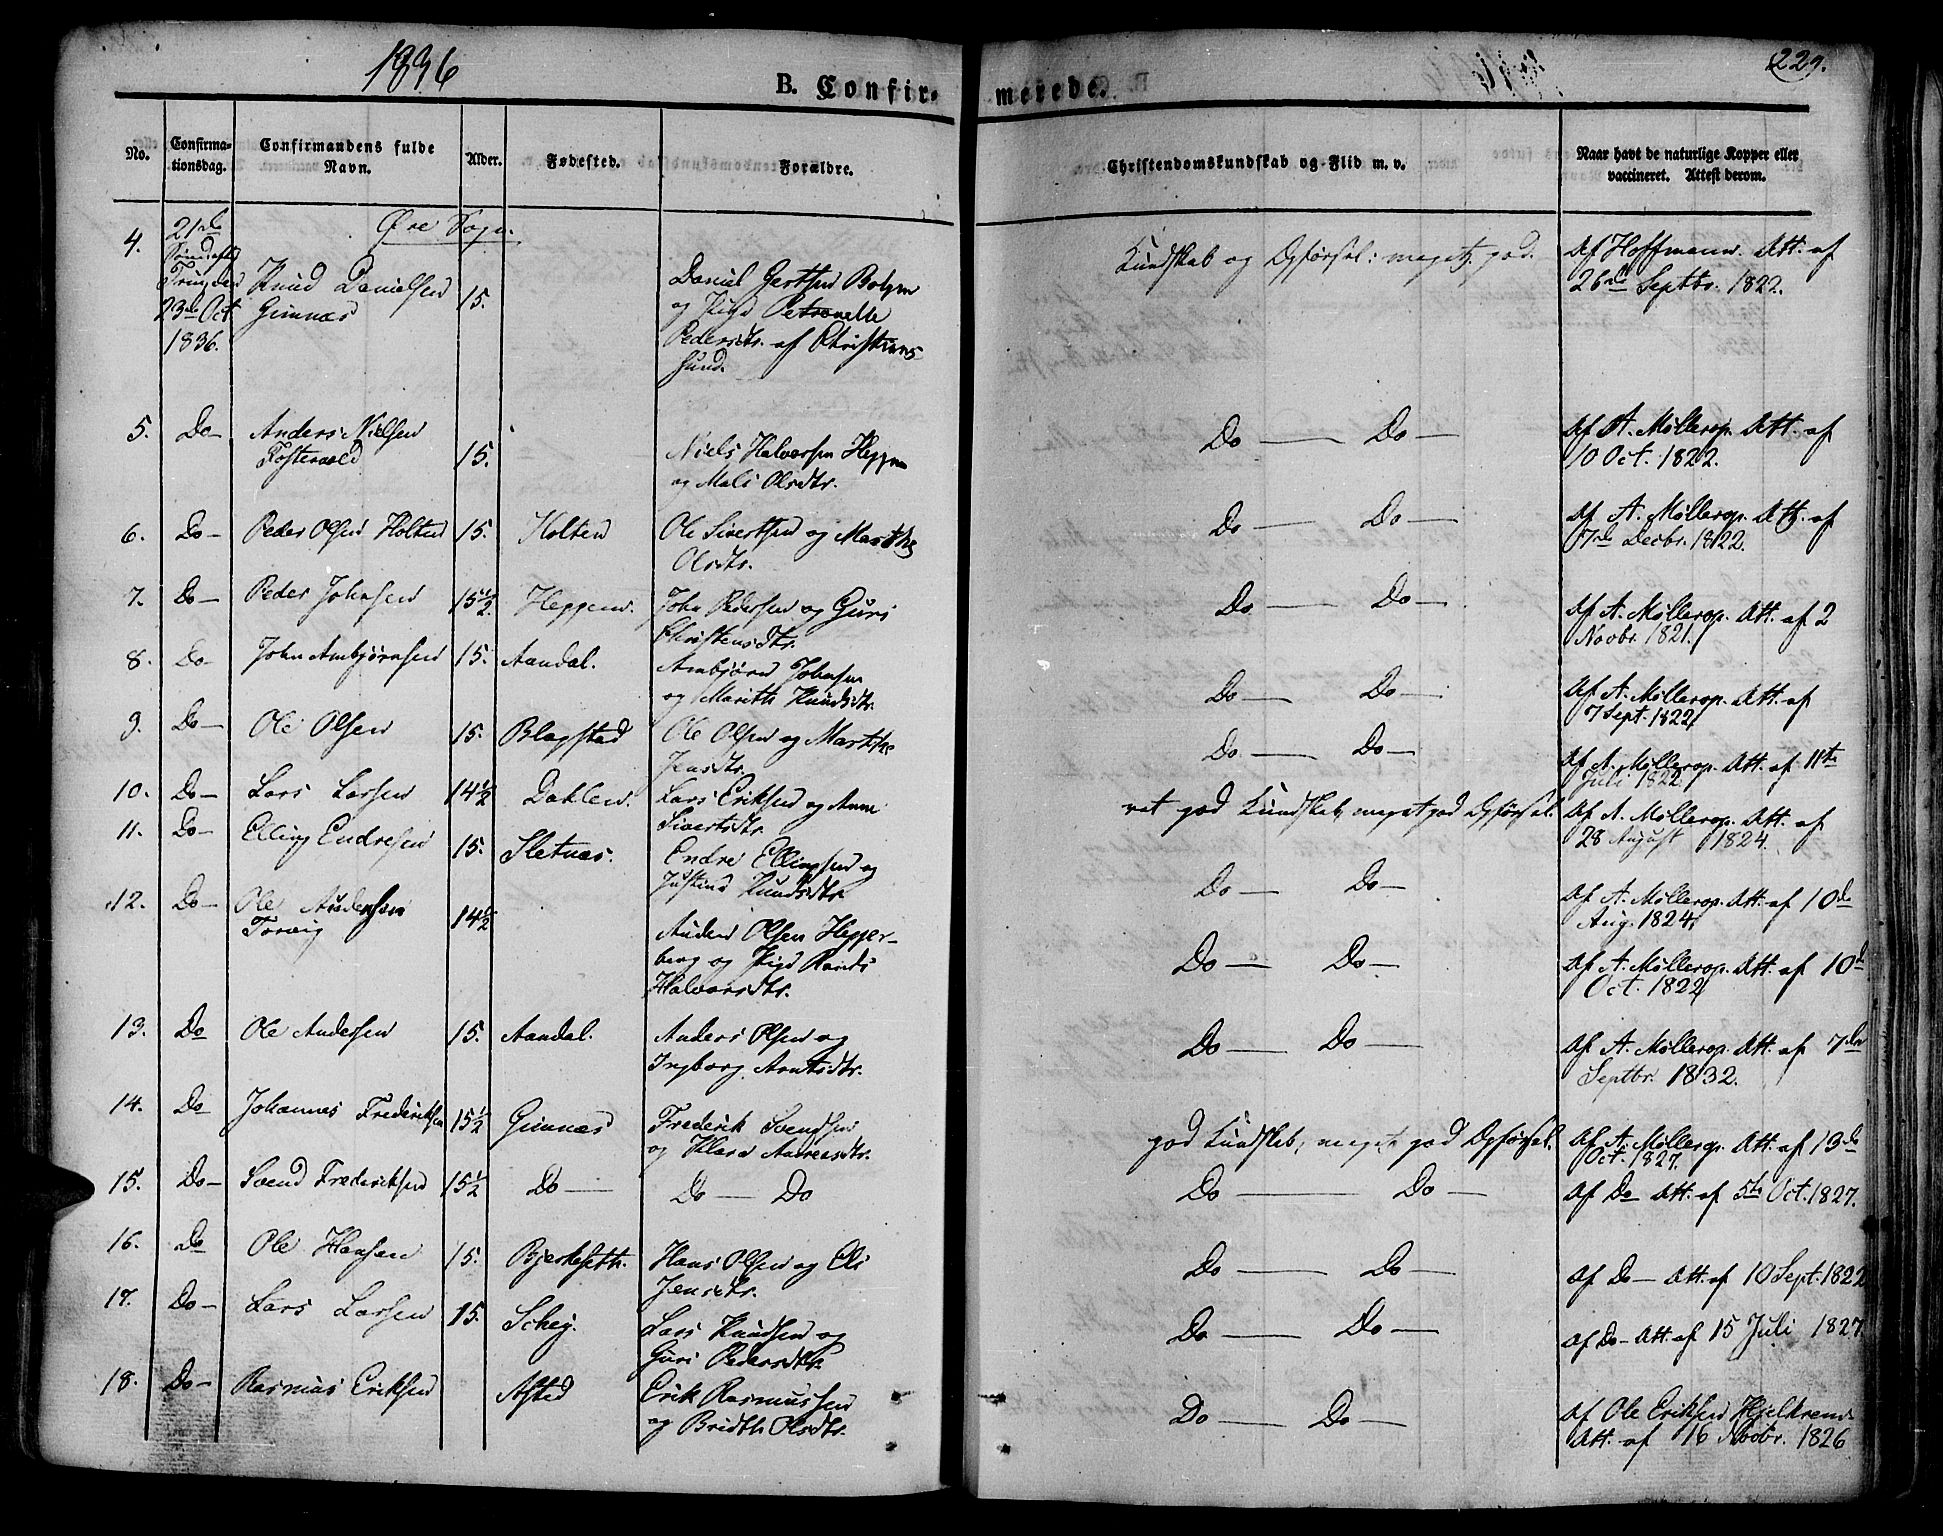 1836
229.
B. Confirmerede.
No.
Confirmationsdag.
Confirmandens fulde Navn.
Alder.
Fødested.
Forældre.
Christendomskundskab og Flid m. v.
Naar havt de naturlige Kopper eller vaccineret. Attest derom.
Øre Sogn.
4.
21de
Søndefter
23de Oct
1836.
Knud Danielsen
Gimnæs
15.
Daniel Gertsen Bolgen
og Pige Petronelle
Pedersdtr. af Christians
sund.
Kundskab og Opførsel: meget god.
af Hoffmann. Att. af
26de Septbr. 1822.
5. Do
Anders Nielsen
Fostervold
15.
Niels Halvorsen Heggen
og Mali Olsdtr.
Do — Do —
af A. Møllerop. Att. af
10 Oct. 1822.
6. Do — Peder Olsen Holten 15. Holten
Ole Sivertsen og Marithe
Olsdtr.
Do — Do —
af A. Møllerop. Att. af
7de Decbr. 1822.
7. Do — Peder Johnsen 15½ Heggen.
John Pedersen og Guri
Christensdtr.
Do — Do —
af A. Møllerop. Att. af 2
Novbr. 1821.
8. Do John Arnbjørnsen 15. Aandal.
Arnbjørn Johnsen
og Marith Knudsdtr.
Do — Do —
af A. Møllerop. Att. af
7 Sept. 1822
9. Do — Ole Olsen 15. Blagstad
Ole Olsen og Marithe
Jensdtr.
Do — Do —
af A. Møllerop. Att. af 11te
Juli 1822
10. Do — Lars Larsen 14½ Dahlen.
Lars Eriksen og Anne
Sivertsdtr.
ret god Kundskab, meget god Opførsel.
af A. Møllerop. Att. af
28 August 1824.
11. Do — Elling Endresen 15. Sletnæs.
Endre Ellingsen og
Justine Knudsdtr.
Do — Do —
af A. Møllerop. Att. af 10de
Aug. 1824.
12. Do — Ole Andersen
Torvig
14½
Anders Olsen Hegger-
berg og Pige Randi
Halvorsdtr.
Do — Do —
af A. Møllerop. Att. af 10de
Oct. 1822
13. Do Ole Andersen 15. Aandal.
Anders Olsen og
Ingborg Arntsdtr.
Do — Do —
af A. Møllerop. Att. af 7de
Septbr. 1832.
14. Do Johannes Frederiksen 15½ Gimnæs
Frederik Svendsen
og Klara Andreasdtr.
god Kundskab, meget god Opførsel.
af A. Møllerop. Att. af 13de
Oct. 1827.
15. Do — Svend Frederiksen 15½ Do — Do — Do
Do — Do —
af Do Att. af 5te Oct. 1827.
16. Do Ole Hansen 15. Bjerkeseth.
Hans Olsen og Eli
Jensdtr.
Do — Do —
af Do — Att. af 10 Sept. 1822
17. Do — Lars Larsen 15. Schey.
Lars Knudsen og
Guri Pedersdtr.
Do — Do —
af Do — Att. af 15 Juli 1827.
18. Do — Rasmus Eriksen Afsted
Erik Rasmussen
og Brith Olsdtr.
Do — Do —
af Ole Eriksen
Att. af 16 Novbr. 1826